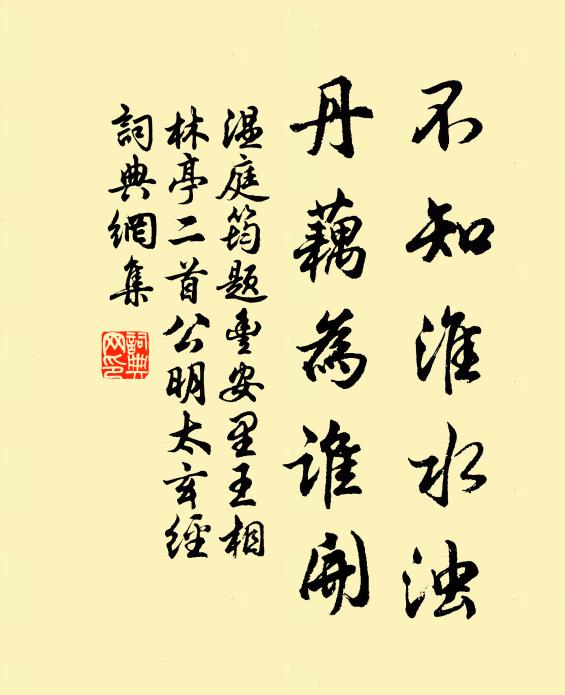 不知淮水浊
丹藕為谁開
温庭筠题豊安里王相
林亭二首公明太玄經
詞典網集
詞典网印